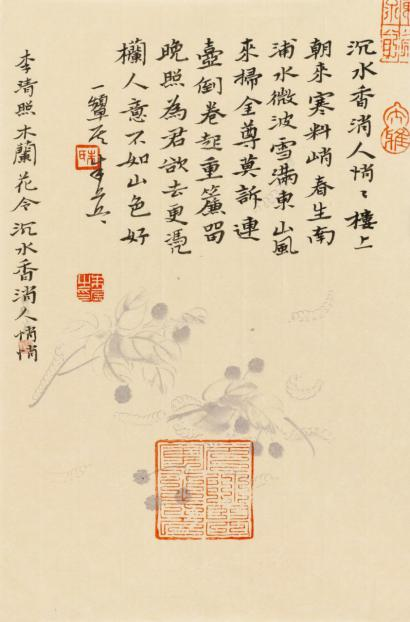 沉水香消人悄々樓上
朝來寒料峭春生南
浦水微波雪滿東山風
來掃金尊莫訴連
壺倒卷起重簾留
晚照為君欲去更憑
欄人意不如山色好
李清照木蘭花令沉水香消人悄悄